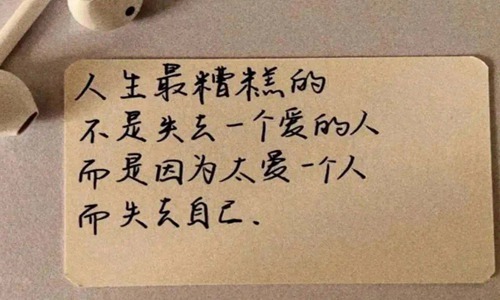 人生最糟糕的
不是失去一个爱的人
而是因为太爱一个人
而失去自己.